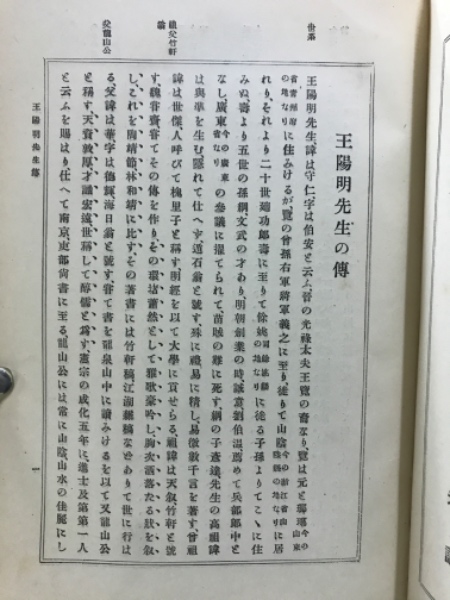 王陽明先生の傳
王陽明先生、諱は守仁、字は伯安と云ふ、晉の光祿太夫王覽の裔なり、覽は元と瑯琊今の山東
省青州府の地なりに住みけるが、覽の曾孫右軍將軍羲之に至り、徒りて山陰今の浙江省山陰縣の地なりに居
れり、それより二十世迪功郎壽に至りて餘姚の地なりに徒る子孫よりてこゝに住
みぬ壽より五世の孫綱、文武の才あり、明朝創業の時誠意劉伯温、薦めて兵部郎中と
なし、廣東今の廣東省なりの參議に擢てられて苗賊の難に死す、綱の子彦達先生の高祖諱
は與準を生む、隱れて仕へず、遁石翁と號す、殊に禮易に精し、易微數千言を著す、曾祖
諱は世傑人呼びて槐里子と稱す、明經を以て大學に貢せらる、祖諱は天叙、竹軒と號
す、魏嘗齋嘗てその傳を作り、その環堵蕭然として雅歌豪吟し、胸次洒落たる狀を叙
し、これを陶靖節林和靖に比す、その著書には竹軒稿、江湖雜稿などありて世に行は
る、父諱は華字は德輝、海日翁と號す、嘗て書を龍泉山中に讀みけるを以て又龍山公
と稱す、天資敦厚、才識宏遠、世稱して醇儒と爲す、憲宗の成化五年に、進士及第第一人
と云ふを賜はり仕へて南京吏部尚書に至る、龍山公には常に山陰山水の佳麗にし
世系
祖父竹軒翁
父龍山公
王陽明先生傳
一